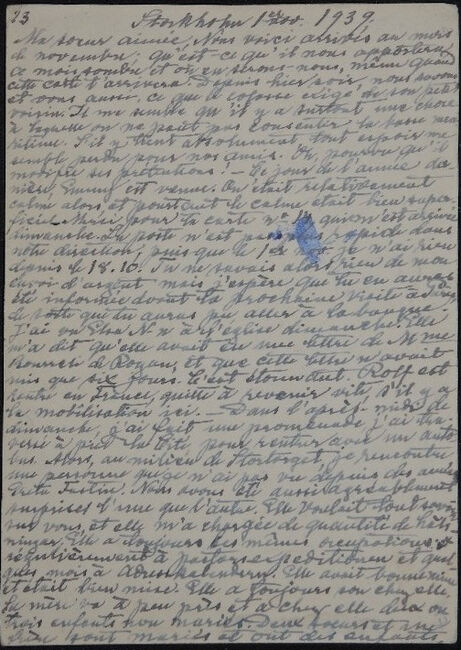 23
Stockholm 1er nov. 1939.
Ma sœur aimée, Nous voici arrivés au mois
de novembre, qu'est-ce qu'il nous apportera
ce mois sombre et où en serons-nous, même quand
cette carte t'arrivera. Depuis hier soir, nous savons
et vous aussi, ce que le colosse exige de son petit
voisin. Il me semble qu'il y a surtout une chose
à laquelle on ne peut pas consentir la base ma-
ritime. S'il y tient absolument, tout espoir me
semble perdu pour nos amis. Oh, pourvu qu'il
modère ses prétentions! — Ce jour de l'année der-
nière, Emmy est venue. On était relativement
calme alors et pourtant le calme était bien super-
ficiel. Merci pour ta carte n° qui m'est arrivée
dimanche. La poste n'est pas rapide dans
notre direction, puis que le 1er je n'ai rien
depuis le 18.10. Tu ne savais alors rien de mon
envoi d'argent mais j'espère que tu en auras
été informée avant ta prochaine visite à
de sorte que tu auras pu aller à la banque.
J'ai vu Elsa N. à l'église dimanche. Elle
m'a dit qu'elle avait eu une lettre de Mme
de Royan, et que cette lettre n'avait
mis que six jours. C'est étonnant. Rolf est
rentré en France, quitte à revenir vite, s'il y a
la mobilisation ici. — Dans l'après-midi de
dimanche, j'ai fait une promenade, j'ai tra-
versé à pied la Cité, pour rentrer avec un auto-
bus. Alors, au milieu de Stortorget, je rencontre
une personne que je n'ai pas vu depuis des années
Greta. Nous avons été aussi agréablement
surprises l'une que l'autre. Elle voulait tout savoir
sur vous, et elle m'a chargée de quantité de häls-
ningar. Elle a toujours les mêmes occupations,
régulièrement à pastorsexpeditionen et quel-
ques mois à. Elle avait bonne mine
et était bien mise. Elle a toujours son chez elle,
sa mère va à peu près et a chez elle deux ou
trois enfants non mariés. Deux sœurs et un
frère sont mariés et ont des enfants.